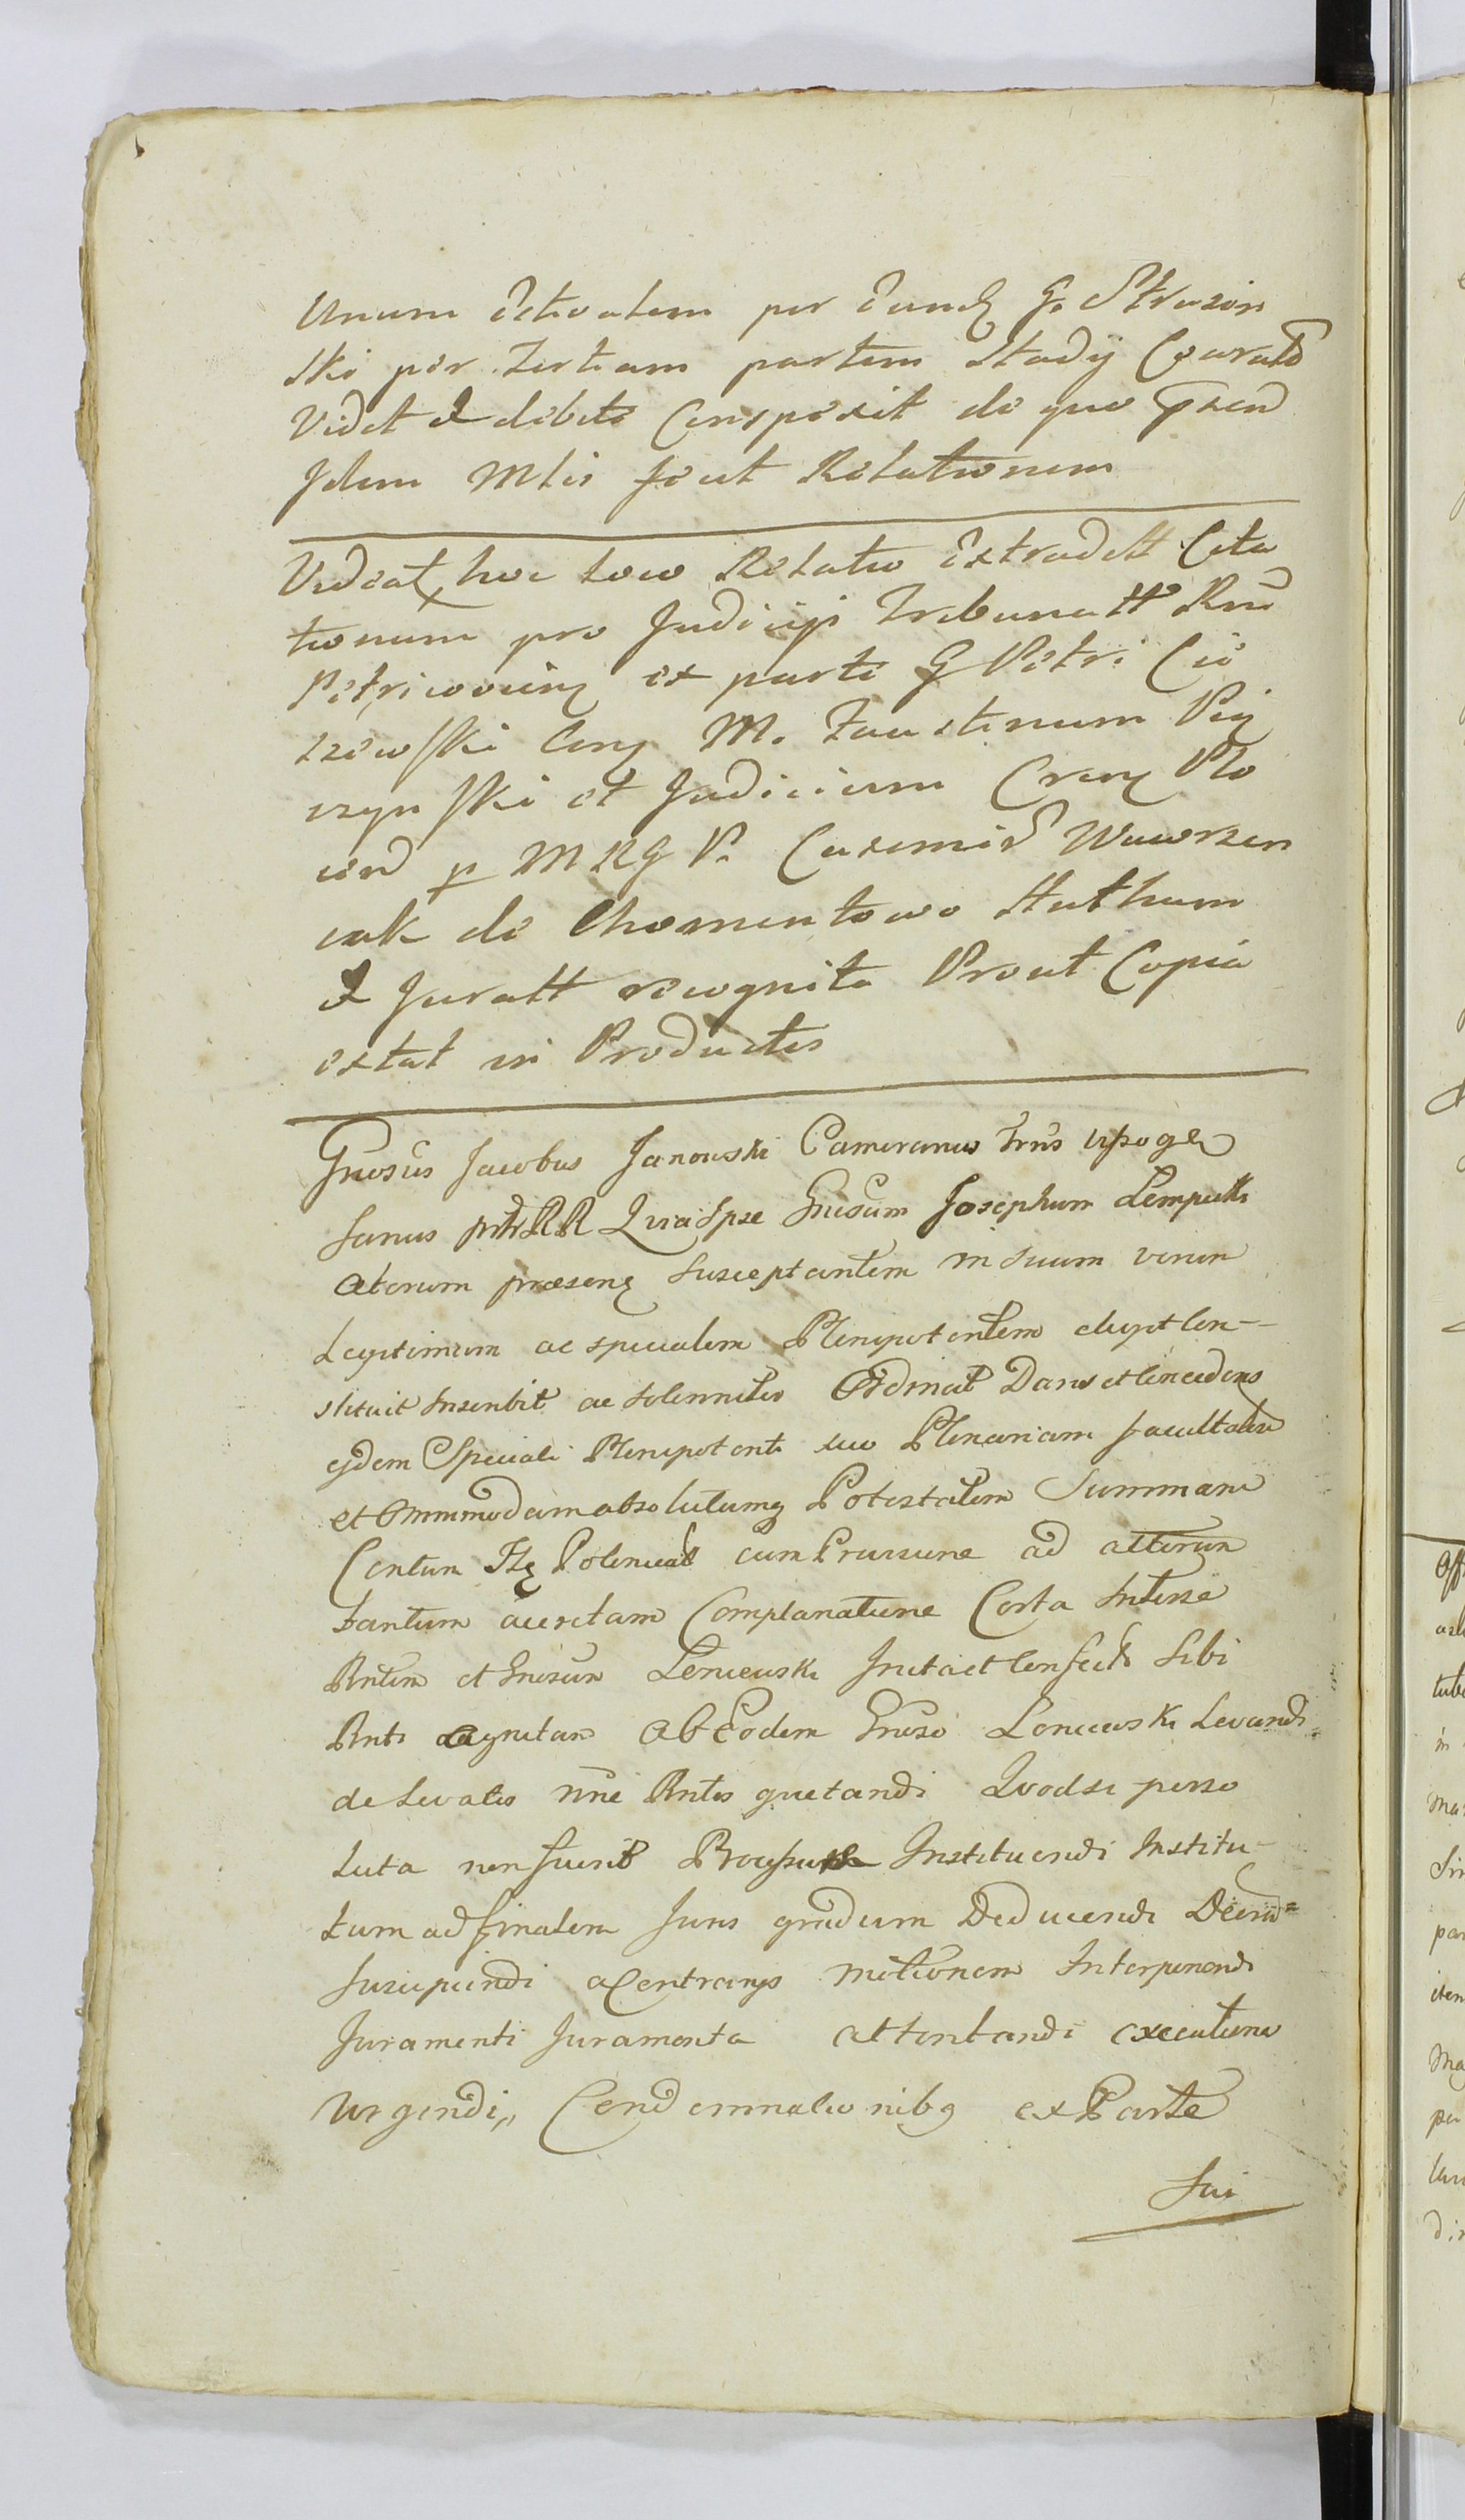 Unum Ictuatem per Eund G. Struszin
ski per tertiam partem Stadij Cavrats
Vidit & debite Conspexit de quo prsen
Idem Mlis fecit Relationem
Videat hoc loco Relatio Extradett Cita
tionum pro Judicijs Tribunatt Rni
Petricovienq ex parte G Petri Cie
szewski Conq M. Faustinum Pig
czynski et Judicium Crenq Plo
cen p MRG P. Casimir Wawrzen
czak de Chomentowo Stathum
& Juratt recognita Prout Copia
extat in Productis
Gnosus Jacobus Janowski Cameranus Trris Wyszoge
Janus RR Quia Ipse Gnosum Josephum Lempicki
Actorum præsenq susceptantem in suum verum
Legitimum ac specialem Plenipotentem elegit Con-
stituit Inscribit ac solenniter Ordinat Dans et Concedens
ejdem Speciali Plenipotenti suo Plenariam facultatem
et Ommmodam absolutamq Potestatem Summam
Centum Flq Polonical cum Provisione ad alterum
tantum accretam Complanatione Certa Inter se
Rntem et Gnosum Leniewski Inita et Confecta Sibi
Rnti agnitam Ab Eodem Gnoso Leniewski Levandi
de Levatis nne Rntis quetandi Quodsi perso
luta non fuerit Instituendi Institu-
tum ad finalem Juris gradum Deducendi Decrá=
Suscipiendi a Contrarijs motionem Interponendi
Juramenti Juramenta attentandi executione
Urgendi,, Condemnationibq ex Parte
Sui